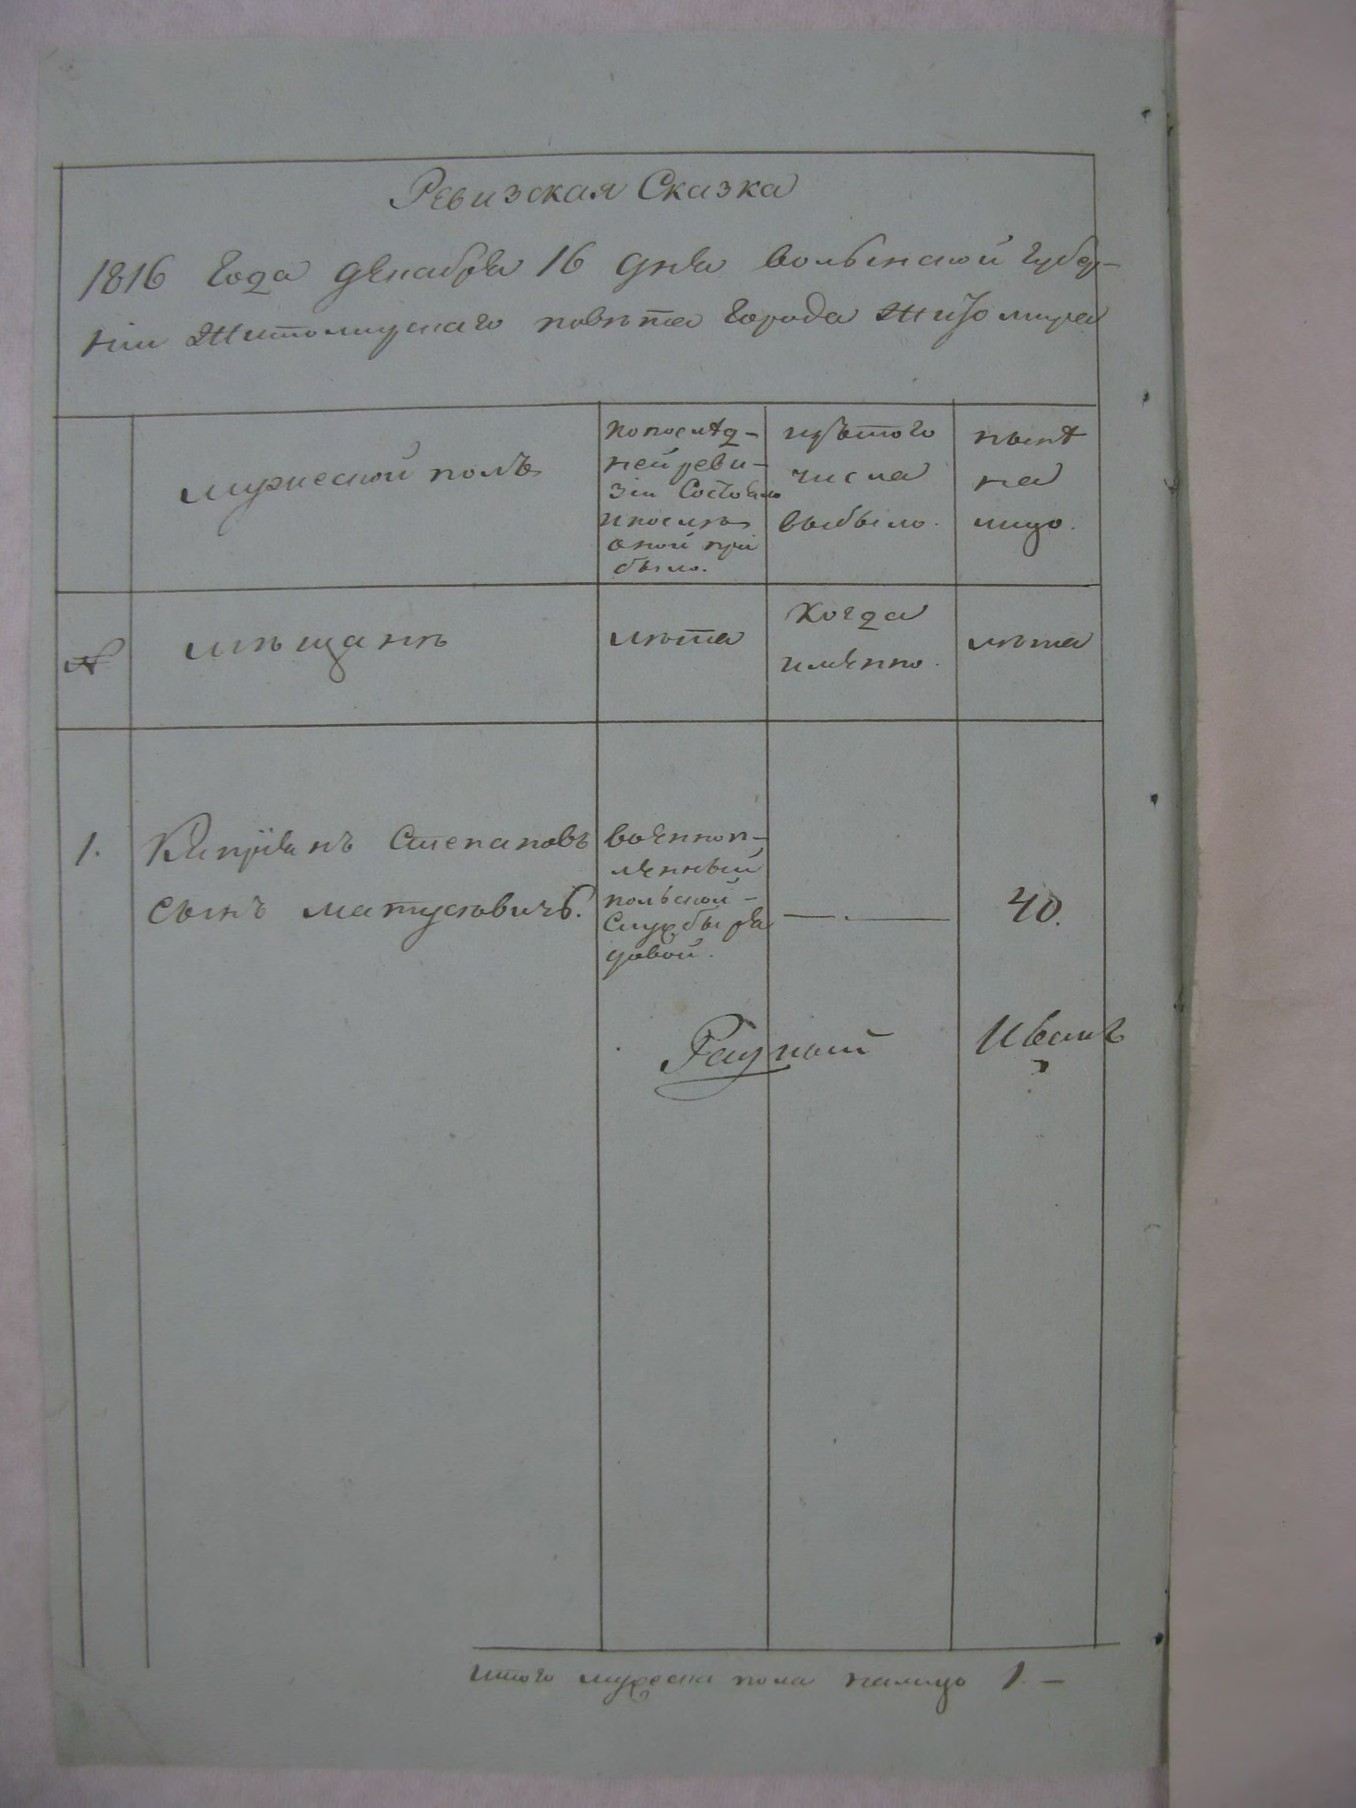 Ревизская Сказка
1816 Года декабря 16 дня волынской губер-
нии Житомирскаго повѣта Города Житомира
мужеской полъ
по послѣд-
ней реви-
зіи Состояло
и послѣ
оной при
было.
изъ того
числа
выбыло.
нынѣ
на
лицо.
№
мѣщанѣ
лѣта
Когда
имѣнно.
лѣта
1.
Кипріянъ Степановъ
сынъ матусѣвичъ.
военноп-
ленный
польской-
службы ря
довой.
— . —
40.
Ратной
Иванъ
итого мужеска пола налицо 1. —